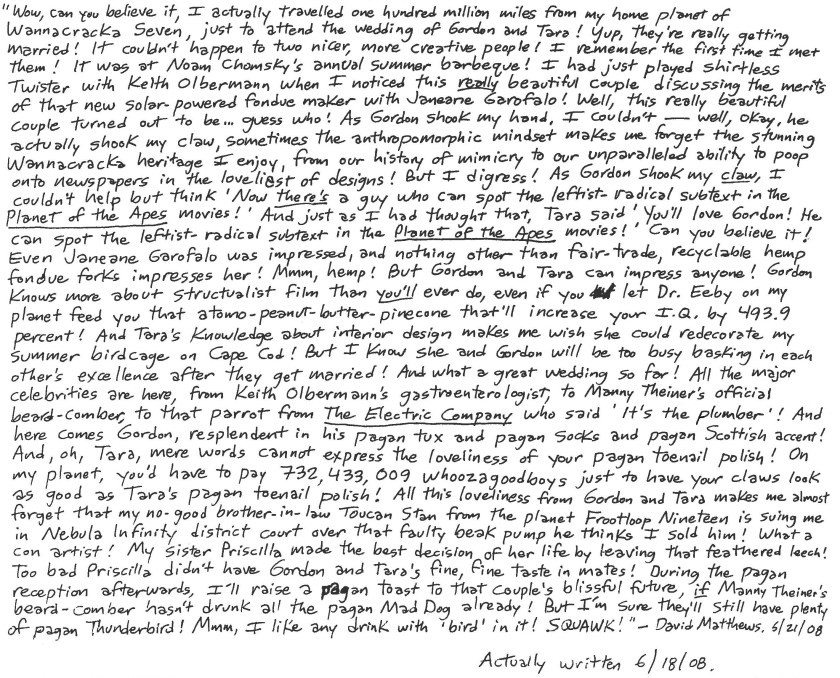 "Wow, can you believe it, I actually travelled one hundred million miles from my home planet of
Wannacracka Seven, just to attend the wedding of Gordon and Tara! Yup, they're really getting
married! It couldn't happen to two nicer, more creative people! I remember the first time I met
them! It was at Noam Chomsky's annual summer barbeque! I had just played shirtless
Twister with Keith Olbermann when I noticed this really beautiful couple discussing the merits
of that new solar-powered fondue maker with Janeane Garofalo! Well, this really beautiful
couple turned out to be... guess who! As Gordon shook my hand, I couldn't — well, okay, he
actually shook my claw, sometimes the anthropomorphic mindset makes me forget the stunning
Wannacracka heritage I enjoy, from our history of mimicry to our unparalleled ability to poop
onto newspapers in the loveliest of designs! But I digress! As Gordon shook my claw, I
couldn't help but think 'Now there's a guy who can spot the leftist-radical subtext in the
Planet of the Apes movies!' And just as I had thought that, Tara said 'You'll love Gordon! He
can spot the leftist-radical subtext in the Planet of the Apes movies!' Can you believe it!
Even Janeane Garofalo was impressed, and nothing other than fair-trade, recyclable hemp
fondue forks impresses her! Mmm, hemp! But Gordon and Tara can impress anyone! Gordon
knows more about structualist film than you'll ever do, even if you let Dr. Eeby on my
planet feed you that atomo-peanut-butter-pinecone that'll increase your I.Q. by 493.9
percent! And Tara's knowledge about interior design makes me wish she could redecorate my
summer birdcage on Cape Cod! But I know she and Gordon will be too busy basking in each
other's excellence after they get married! And what a great wedding so far! All the major
celebrities are here, from Keith Olbermann's gastroenterologist, to Manny Theiner's official
beard-comber, to that parrot from The Electric Company who said 'It's the plumber'! And
here comes Gordon, resplendent in his pagan tux and pagan socks and pagan Scottish accent!
And, oh, Tara, mere words cannot express the loveliness of your pagan toenail polish! On
my planet, you'd have to pay 732,433,009 whoozagoodboys just to have your claws look
as good as Tara's pagan toenail polish! All this loveliness from Gordon and Tara makes me almost
forget that my no-good brother-in-law Toucan Stan from the planet Frootloop Nineteen is suing me
in Nebula Infinity district court over that faulty beak pump he thinks I sold him! What a
con artist! My sister Priscilla made the best decision of her life by leaving that feathered leech!
Too bad Priscilla didn't have Gordon and Tara's fine, fine taste in mates! During the pagan
reception afterwards, I'll raise a pagan toast to that couple's blissful future, if Manny Theiner's
beard-comber hasn't drunk all the pagan Mad Dog already! But I'm sure they'll still have plenty
of pagan Thunderbird! Mmm, I like any drink with 'bird' in it! SQUAWK!" — David Matthews. 6/21/08
Actually written 6/18/08.